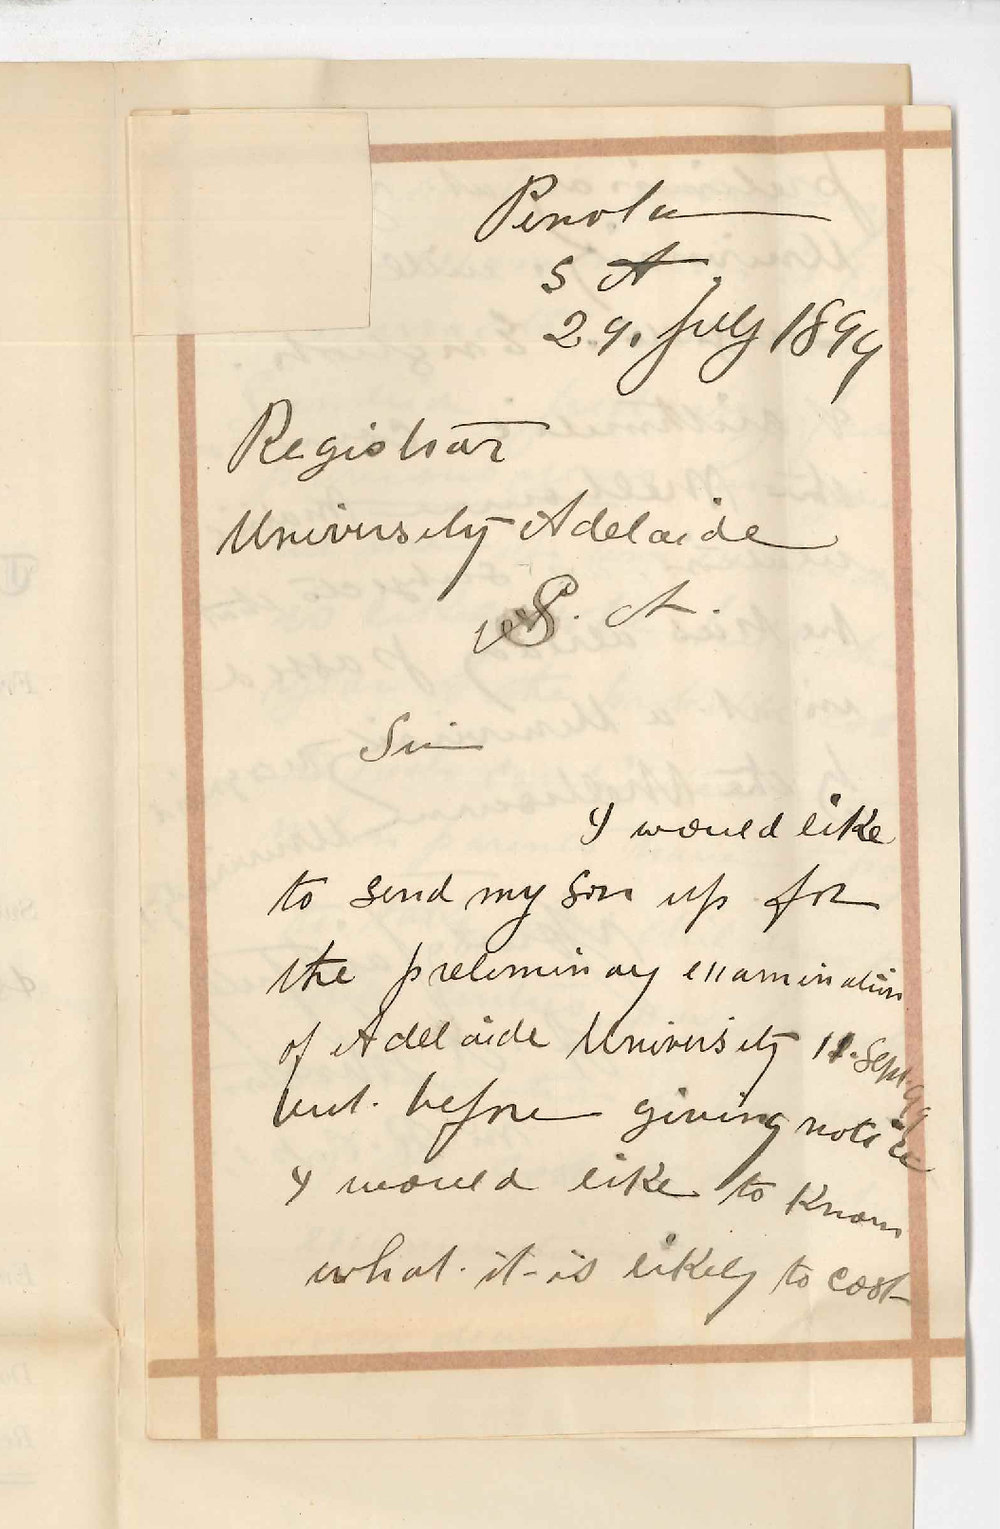 Penola
S A.
29. July 1899
Registrar
University Adelaide
S. A.
Sir
I would like
to send my son up for
the preleminary examination
of Adelaide University 11. Sept. 99
but. before giving notice
I would like to know
what. it is likely to cost